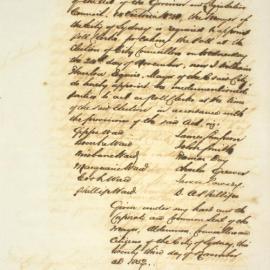 of the Act of the Governor and Legislative
Council, the Mayor of
the City of Sydney is required to appoint
Poll Clerks for taking the Poll at the
Election of City Councillors on Wednesday
the 24th day of November, now I William
Thurlow Esquire, Mayor of the said City
do hereby appoint the undermentioned
parties to act as Poll Clerks at the time
of the said Election in accordance with
the provisions of the said Act, viz.
Gipps Ward
Bourke Ward John Smith
Brisbane Ward
Macquarie Ward Charles
Cook Ward James
Phillip Ward B. A. Phillips
Given under my hand and the
Corporate and Common Seal of the
Mayor, Aldermen, Councillors and
Citizens of the City of Sydney, this
Twenty third day of November
AD 1852.